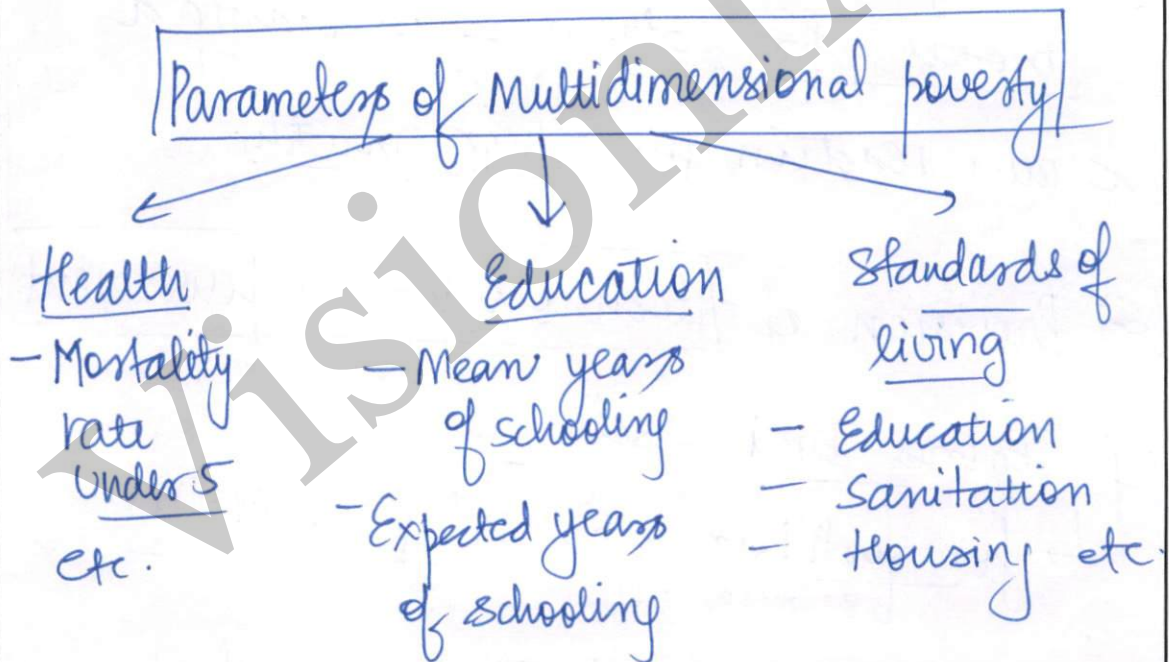 Parameters of Multidimensional poverty
Health
- Mortality
rate
under 5
etc.
Education
- Mean years
of schooling
- Expected years
of schooling
Standards of
living
- Education
- Sanitation
- Housing etc.
Vision